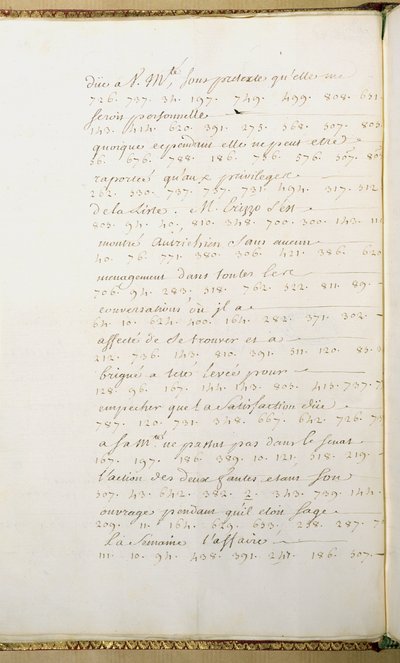 düe a V. M.té sous pretexte qu'elle me
726. 737. 34. 197. 749. 499. 808. 651.
seroit personnelle
143. 414. 620. 391. 273. 368. 307. 803
quoique cependant elle ne peut etre
36. 676. 788. 186. 736. 376. 307. 80
raportée qu'aux privileges
262. 330. 737. 737. 731. 494. 317. 312
de la Liste. M. Erizzo s'est
803. 94. 40. 810. 348. 700. 300. 143. 11
montré Autrichien sans aucun
40. 76. 771. 380. 306. 421. 386. 620
menagement dans toutes les
706. 94. 283. 318. 762. 322. 811. 89.
conversations où il a
64. 10. 624. 400. 164. 282. 371. 302.
affecté de se trouver et a
212. 736. 143. 810. 391. 311. 120. 83.
brigué a tete levée pour
128. 96. 167. 144. 143. 803. 413. 737.
empecher que la satisfaction düe
787. 120. 731. 348. 667. 642. 726.
a sa M.té ne passat pas dans le senat
167. 197. 186. 389. 10. 121. 318. 219.
l'action des deux etant son
307. 43. 642. 382. 2. 343. 739. 144.
ouvrage pendant qu'il etoit sage
209. 11. 164. 629. 633. 238. 287.
la semaine l'affaire
111. 10. 94. 438. 391. 247. 186. 307.